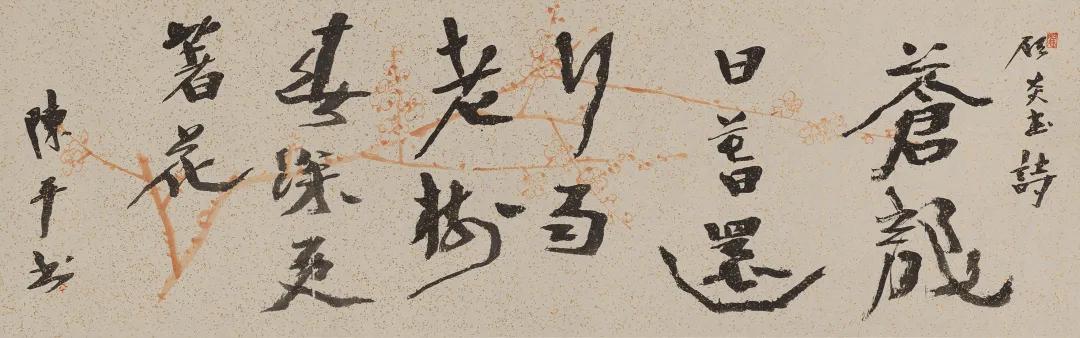 顾炎武詩
蒼龍
日暮還
行雨
老樹
春深更
著花
陳平书